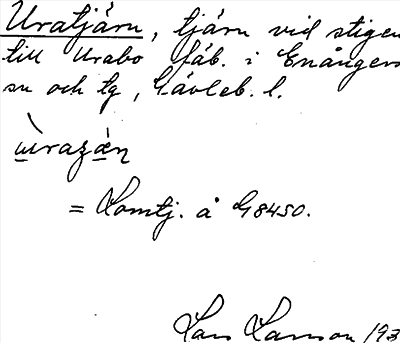 Uratjärn, tjärn vid stigen
till Urabo fäb. i Enångers
sn och tg, Gävleb. l.
= Lomtj. å G8450.
Lars Larsson 193